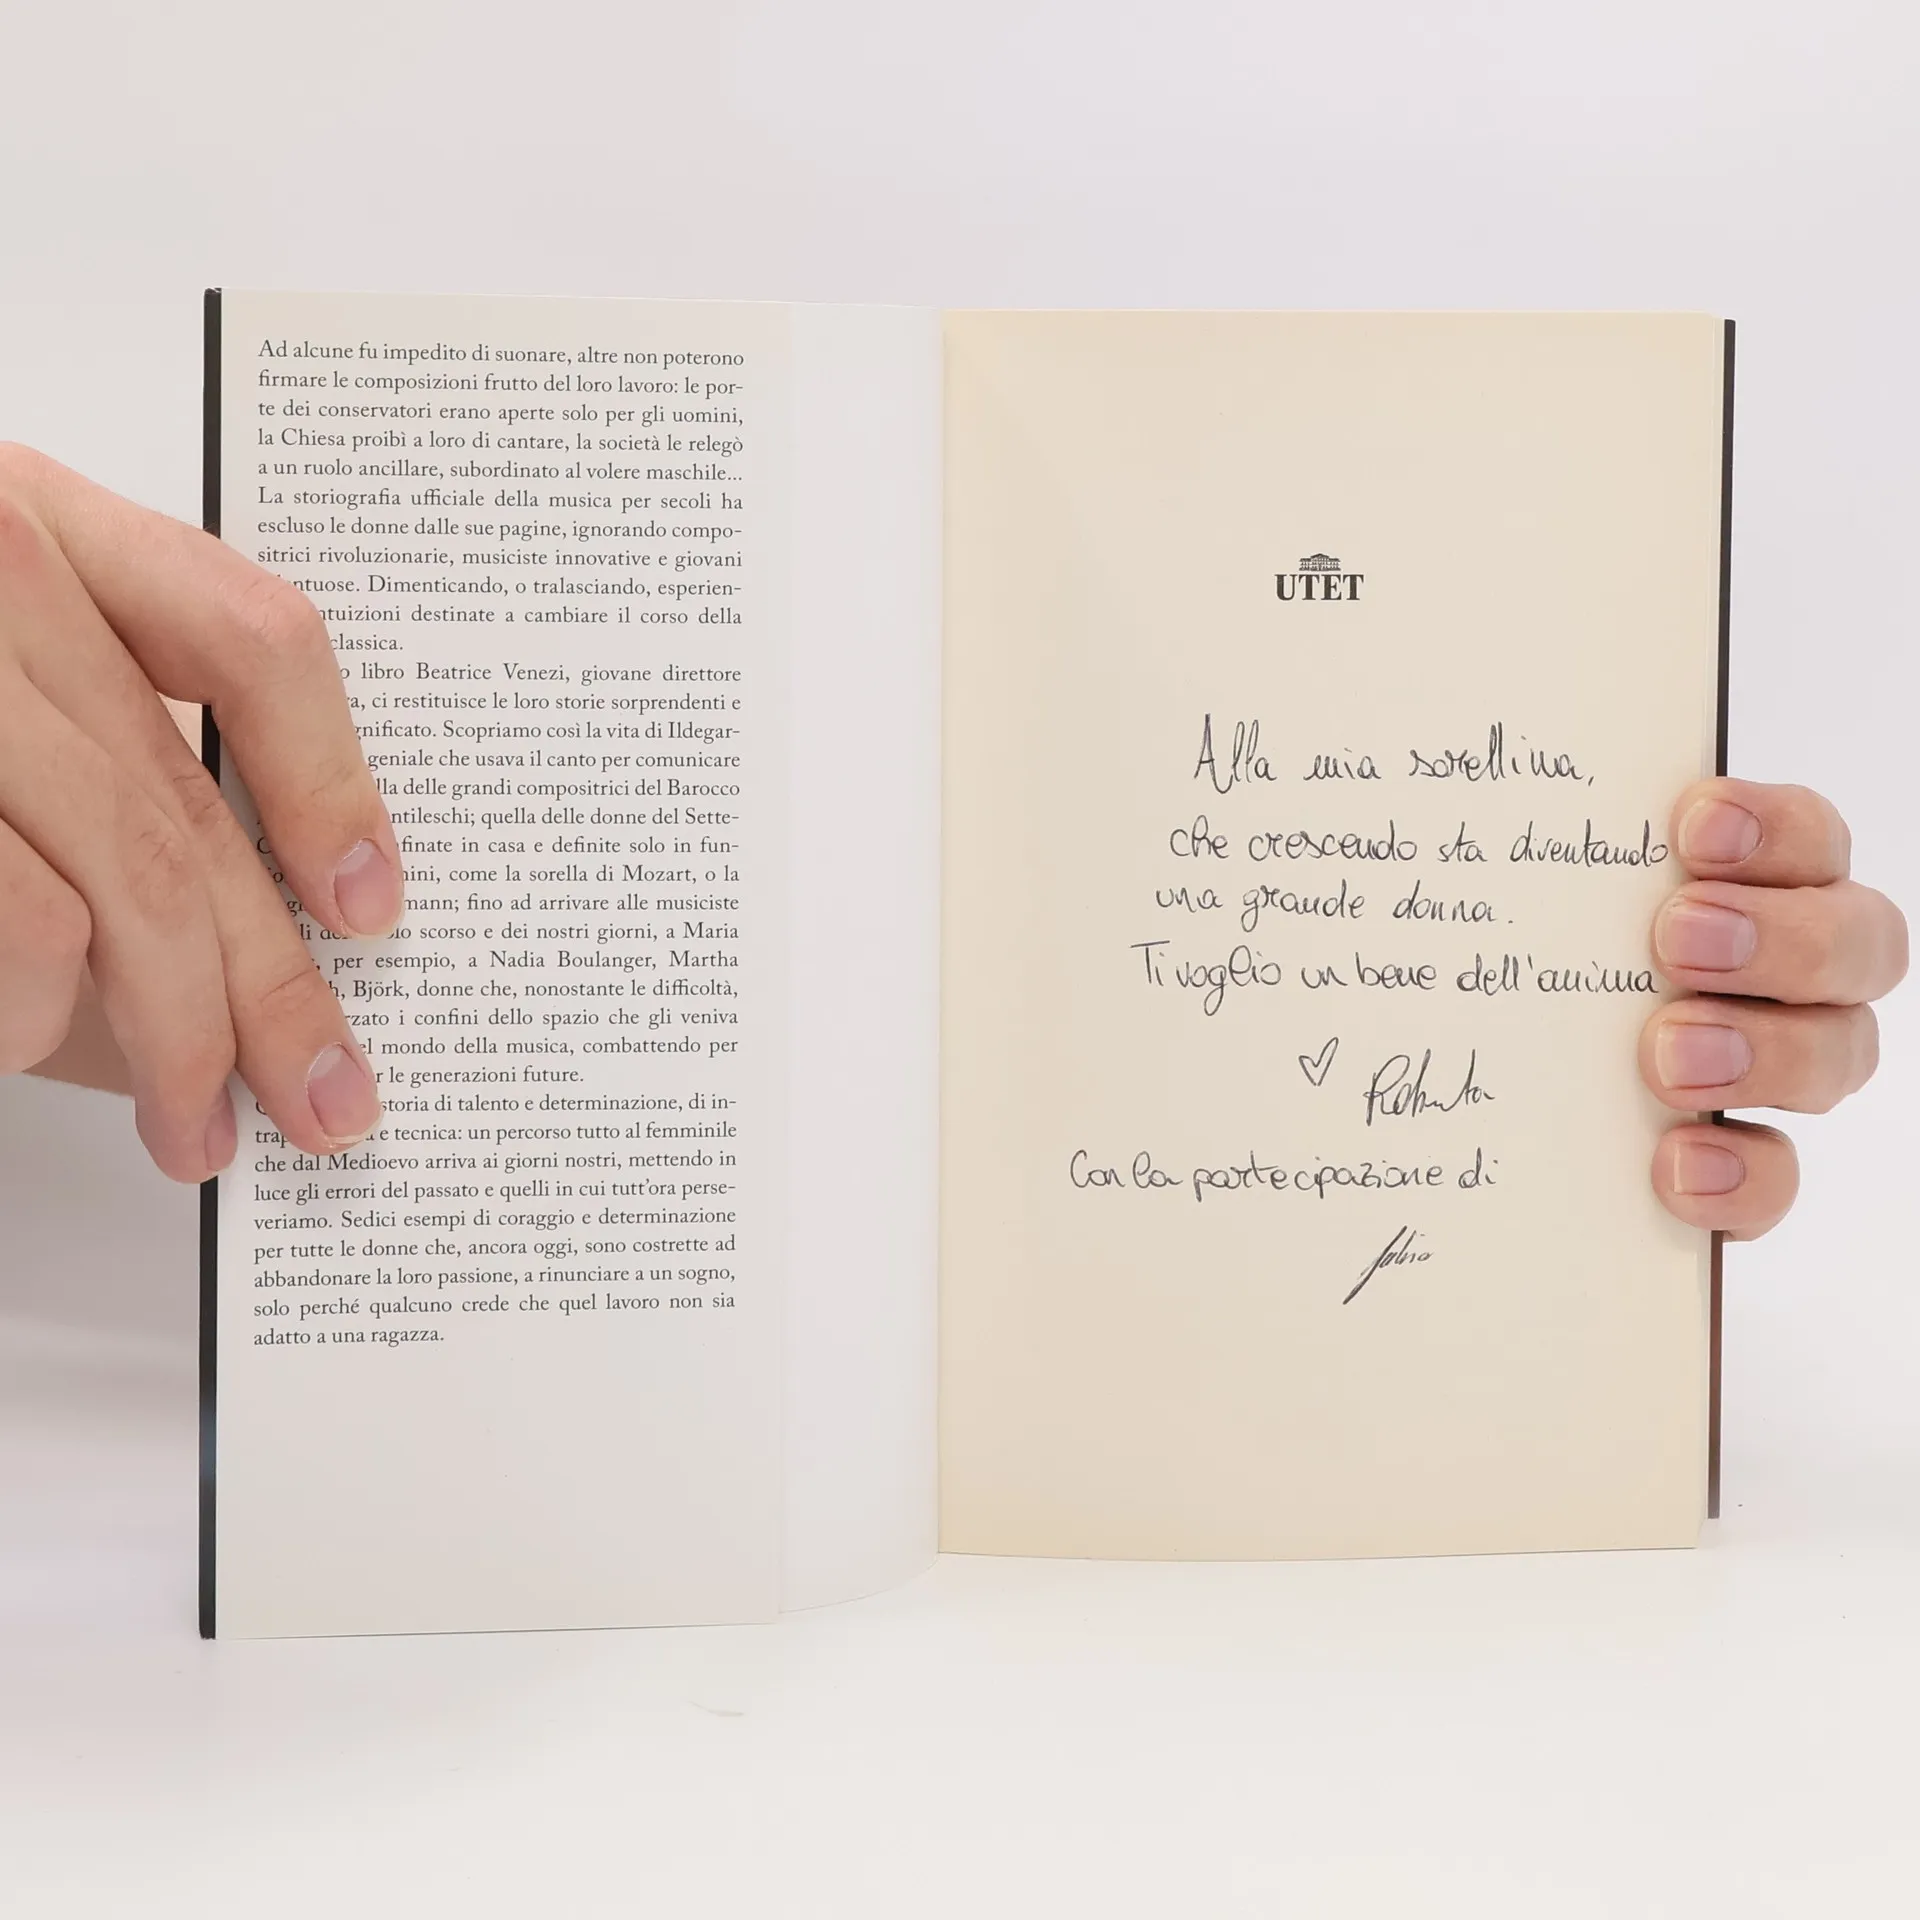 Ad alcune fu impedito di suonare, altre non poterono
firmare le composizioni frutto del loro lavoro: le por-
te dei conservatori erano aperte solo per gli uomini,
la Chiesa proibì a loro di cantare, la società le relegò
a un ruolo ancillare, subordinato al volere maschile...
La storiografia ufficiale della musica per secoli ha
escluso le donne dalle sue pagine, ignorando compo-
sitrici rivoluzionarie, musiciste innovative e giovani
ntuose. Dimenticando, o tralasciando, esperien-
ntuizioni destinate a cambiare il corso della
classica.
o libro Beatrice Venezi, giovane direttore
ra, ci restituisce le loro storie sorprendenti e
gnificato. Scopriamo così la vita di Ildegar-
geniale che usava il canto per comunicare
lla delle grandi compositrici del Barocco
ntileschi; quella delle donne del Sette-
finate in casa e definite solo in fun-
ini, come la sorella di Mozart, o la
mann; fino ad arrivare alle musiciste
lo scorso e dei nostri giorni, a Maria
per esempio, a Nadia Boulanger, Martha
h, Björk, donne che, nonostante le difficoltà,
rzato i confini dello spazio che gli veniva
el mondo della musica, combattendo per
r le generazioni future.
storia di talento e determinazione, di in-
trap a e tecnica: un percorso tutto al femminile
che dal Medioevo arriva ai giorni nostri, mettendo in
luce gli errori del passato e quelli in cui tutt'ora perse-
veriamo. Sedici esempi di coraggio e determinazione
per tutte le donne che, ancora oggi, sono costrette ad
abbandonare la loro passione, a rinunciare a un sogno,
solo perché qualcuno crede che quel lavoro non sia
adatto a una ragazza.
UTET
Alla mia sorellina,
che crescendo sta diventando
una grande donna.
Ti voglio un bene dell'anima
♡ Roberta
Con la partecipazione di